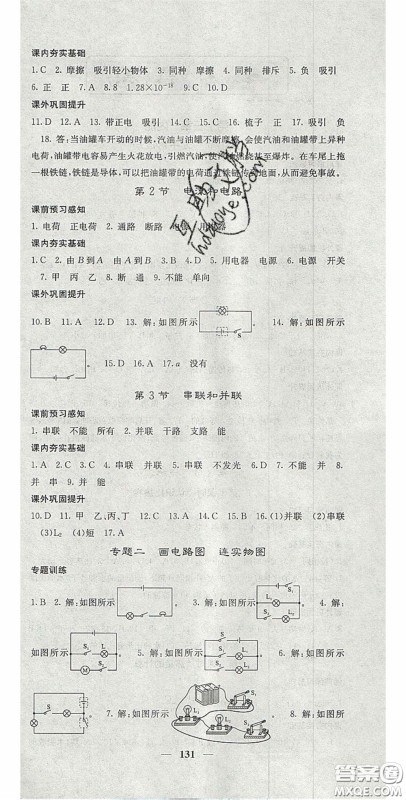 课内夯实基础
1. C 2. 摩擦 吸引轻小物体 3. 同种 摩擦 4. 同种 排斥 5. 负 吸引
6. 正 正 7. A 8. 8 1.28×10⁻¹⁸ 9. B 10. B
课外巩固提升
11. D 12. A 13. 带正电 吸引 14. C 15. C 16. 梳子 正 17. 吸引 负
18. 答:当油罐车开动的时候,汽油与油罐不断摩擦,会使汽油和油罐带上异种
电荷,油罐带电容易产生火花放电,引燃汽油,使汽油燃烧甚至爆炸。在车尾上拖
一根铁链,铁链是导体,油罐上带的电通过铁链传给大地,从而避免发生事故。
第2节 电源和电路
课前预习感知
1. 电荷 正电荷 2. 通路 断路
课内夯实基础
1. C 2. 由B到A 由A到B 3. D 4. C 5. 用电器 6. 电源 开关
7. 甲 丙 乙 8. 断 通 9. 不能 单向
课外巩固提升
10. B 11. A 12. D 13. 解:如图所示 S 。 14. 解:如图所示
。 15. D 16. A 17. a 没有
第3节 串联和并联
课前预习感知
1. 串联 不能 所有 2. 并联 干路 支路 能
课内夯实基础
1. A 2. C 3. C 4. 串联 并联 5. 串联 不发光 6. D 7. 不能 并 8.
并 串 9. 并联 能
课外巩固提升
10. D 11. 甲 乙、丙、丁 12. B 13. C 14. B 15. D 16. (1)并联 (2)串联
(3)L₂ (4)短 17. A
专题二 画电路图 连实物图
专题训练
1. B 2. 解:如图所示 。 3. 解:如图所示 。 4. 解:
如图所示 S₁ S₂ M 。 5. 解:如图所示 S S₁ L₁ S₂ L₂ 。 6. 解:如图所示
L₁ L₂ S 。 7. 解:如图所示 S₁ L₁ L₂ S₂ 。 8. 解:如图所示
131
答案圈
MXQE.COM